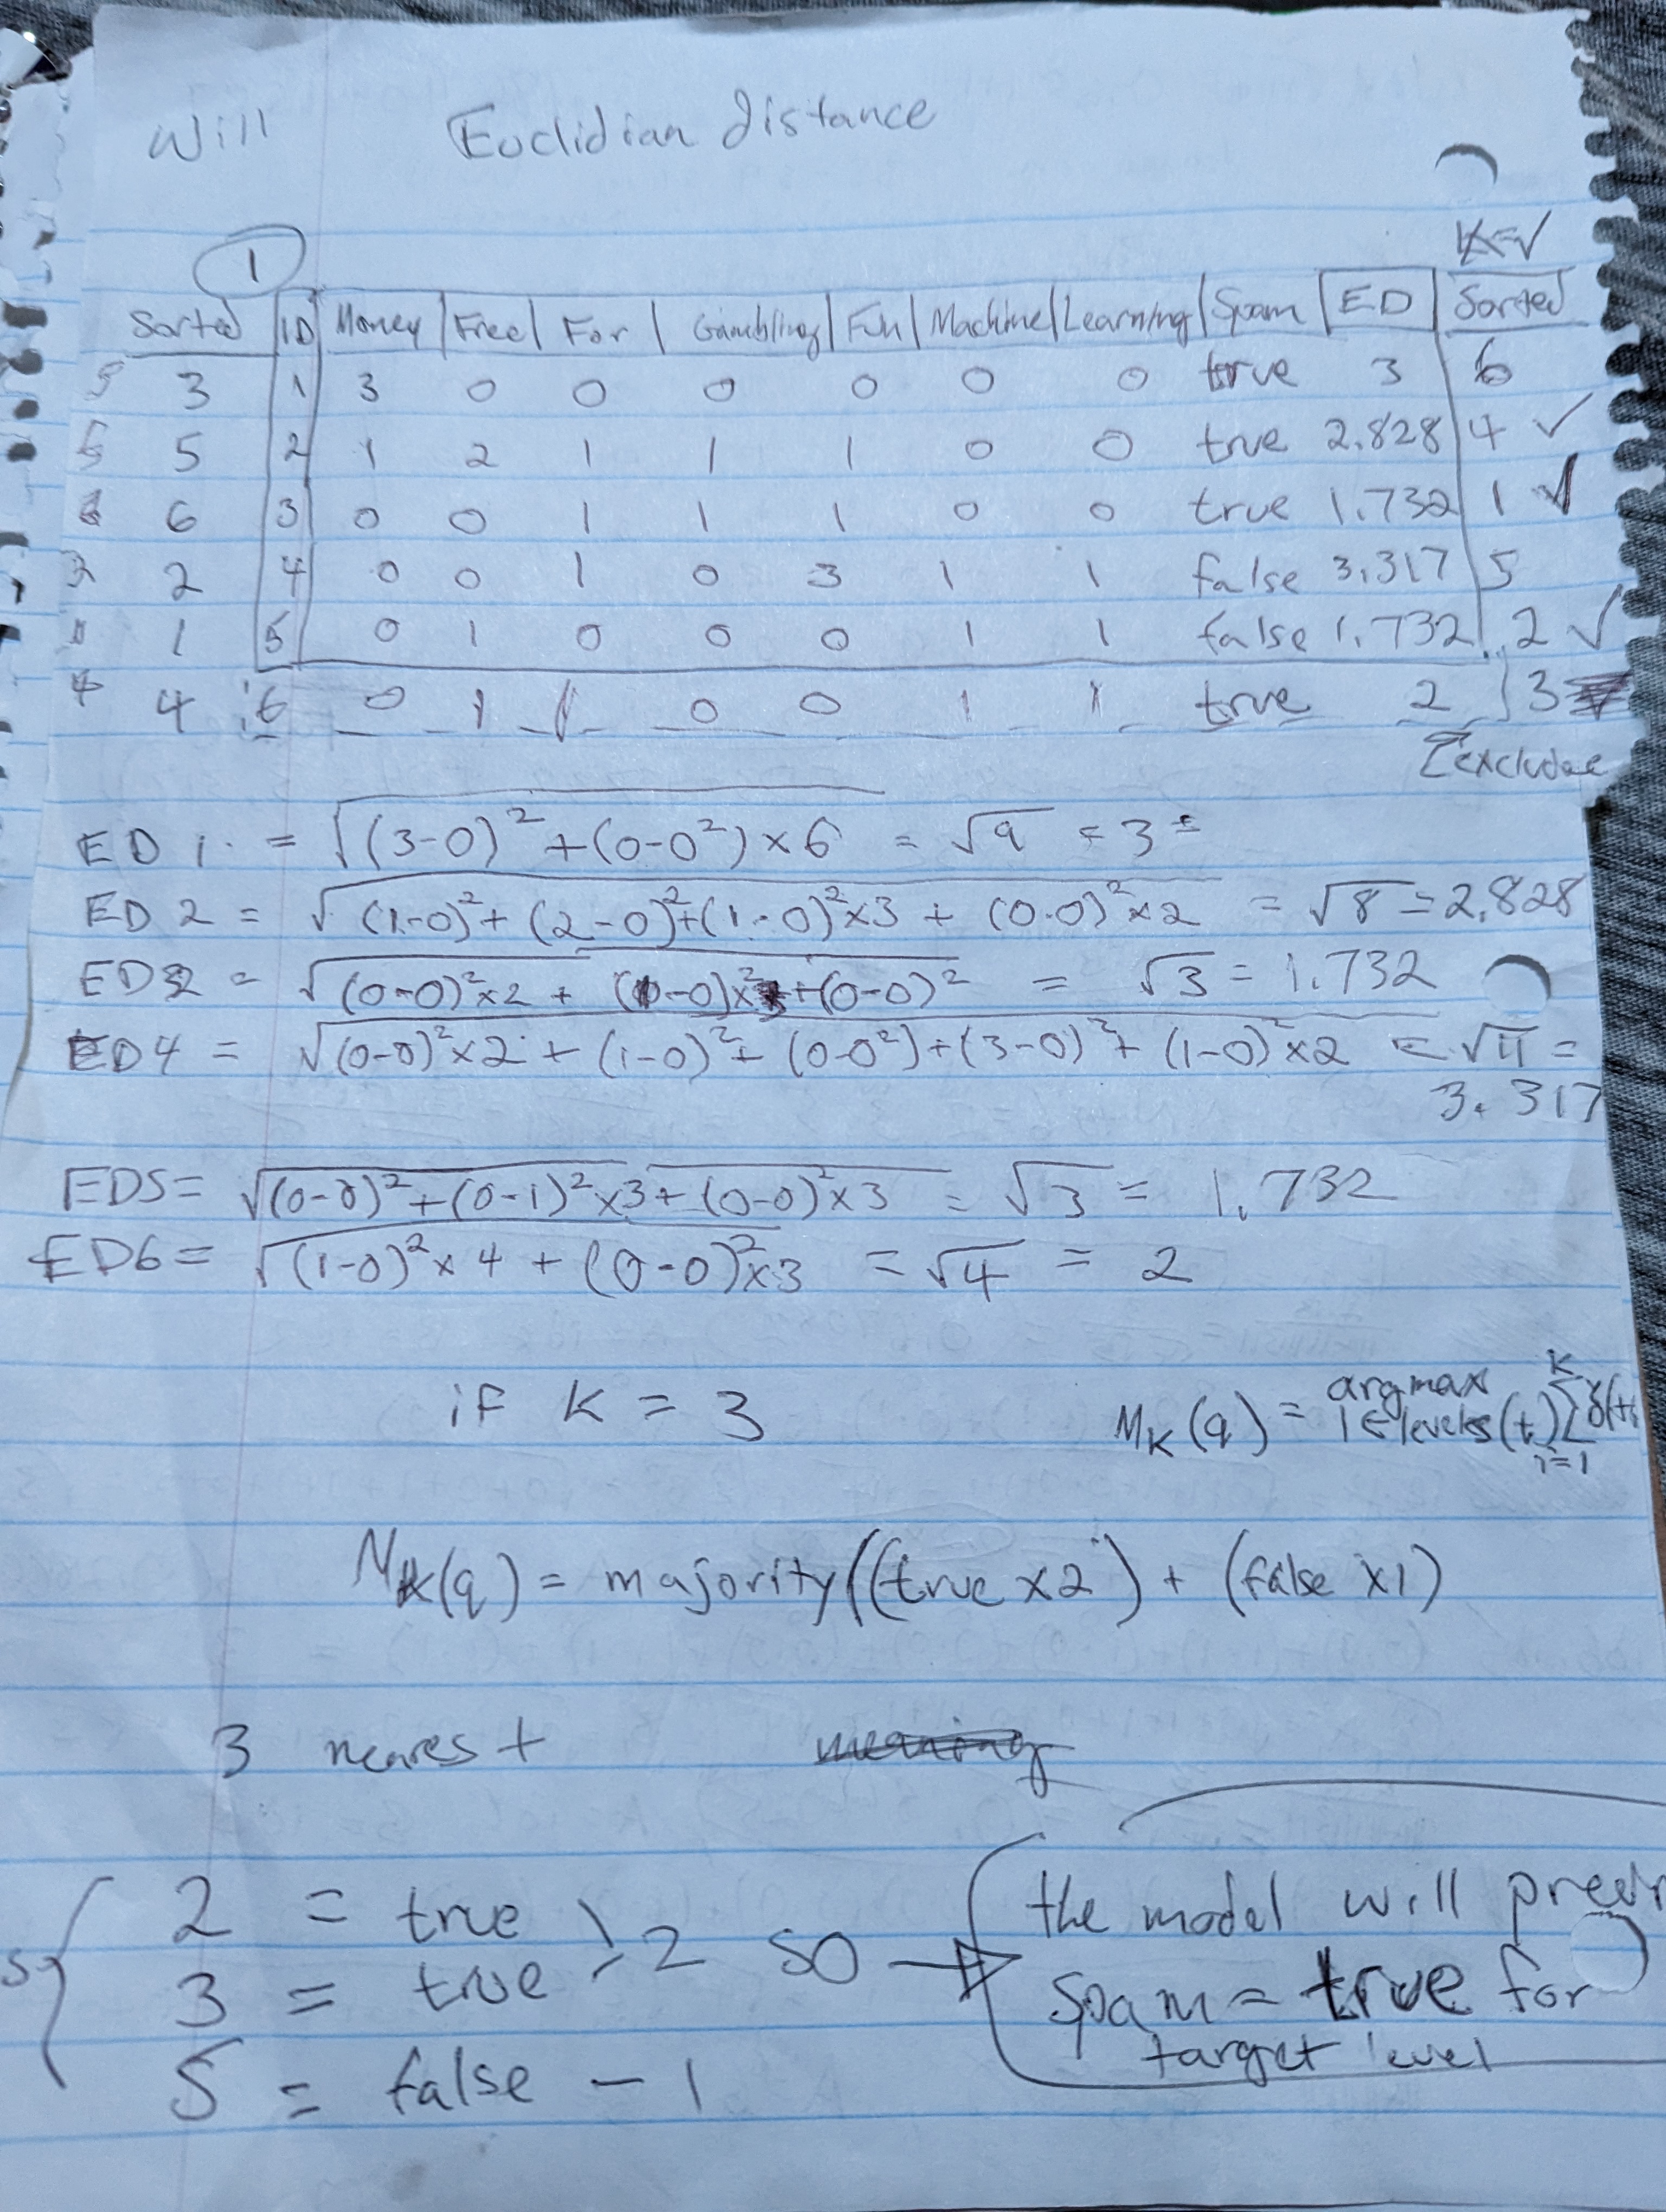 Will Euclidian distance
1 K=√
Sorted ID Money Free For Gambling Fun Machine Learning Spam ED Sorted
3 1 3 0 0 0 0 0 0 true 3 6
5 5 2 1 2 1 1 1 0 0 true 2.828 4 ✓
6 3 0 0 1 1 1 0 0 true 1.732 1 ✓
2 4 0 0 1 0 3 1 1 false 3.317 5
1 5 0 1 0 0 0 1 1 false 1.732 2 ✓
4 4 6 0 1 1 0 0 1 1 true 2 3
exclude
ED 1. = √(3-0)² + (0-0²) × 6 = √9 = 3 =
ED 2 = √(1-0)² + (2-0)² + (1-0)² × 3 + (0-0)² × 2 = √8 = 2.828
= √(0-0)² × 2 + (1-0)² × + (0-0)² = √3 = 1.732
ED4 = √(0-0)² × 2 + (1-0)² + (0-0²) + (3-0)² + (1-0)² × 2 = √11 =
3.317
ED5 = √(0-0)² + (0-1)² × 3 + (0-0)² × 3 = √3 = 1.732
ED6 = √(1-0)² × 4 + (0-0)² × 3 = √4 = 2
if K = 3
M_K(q) = argmax l ∈ levels(t) Σ K i=1 δ(t
M_K(q) = majority((true × 2) + (false × 1)
3 nearest
2 = true
3 = true } 2 so → the model will
5 = false - 1
Spam = true for
target level